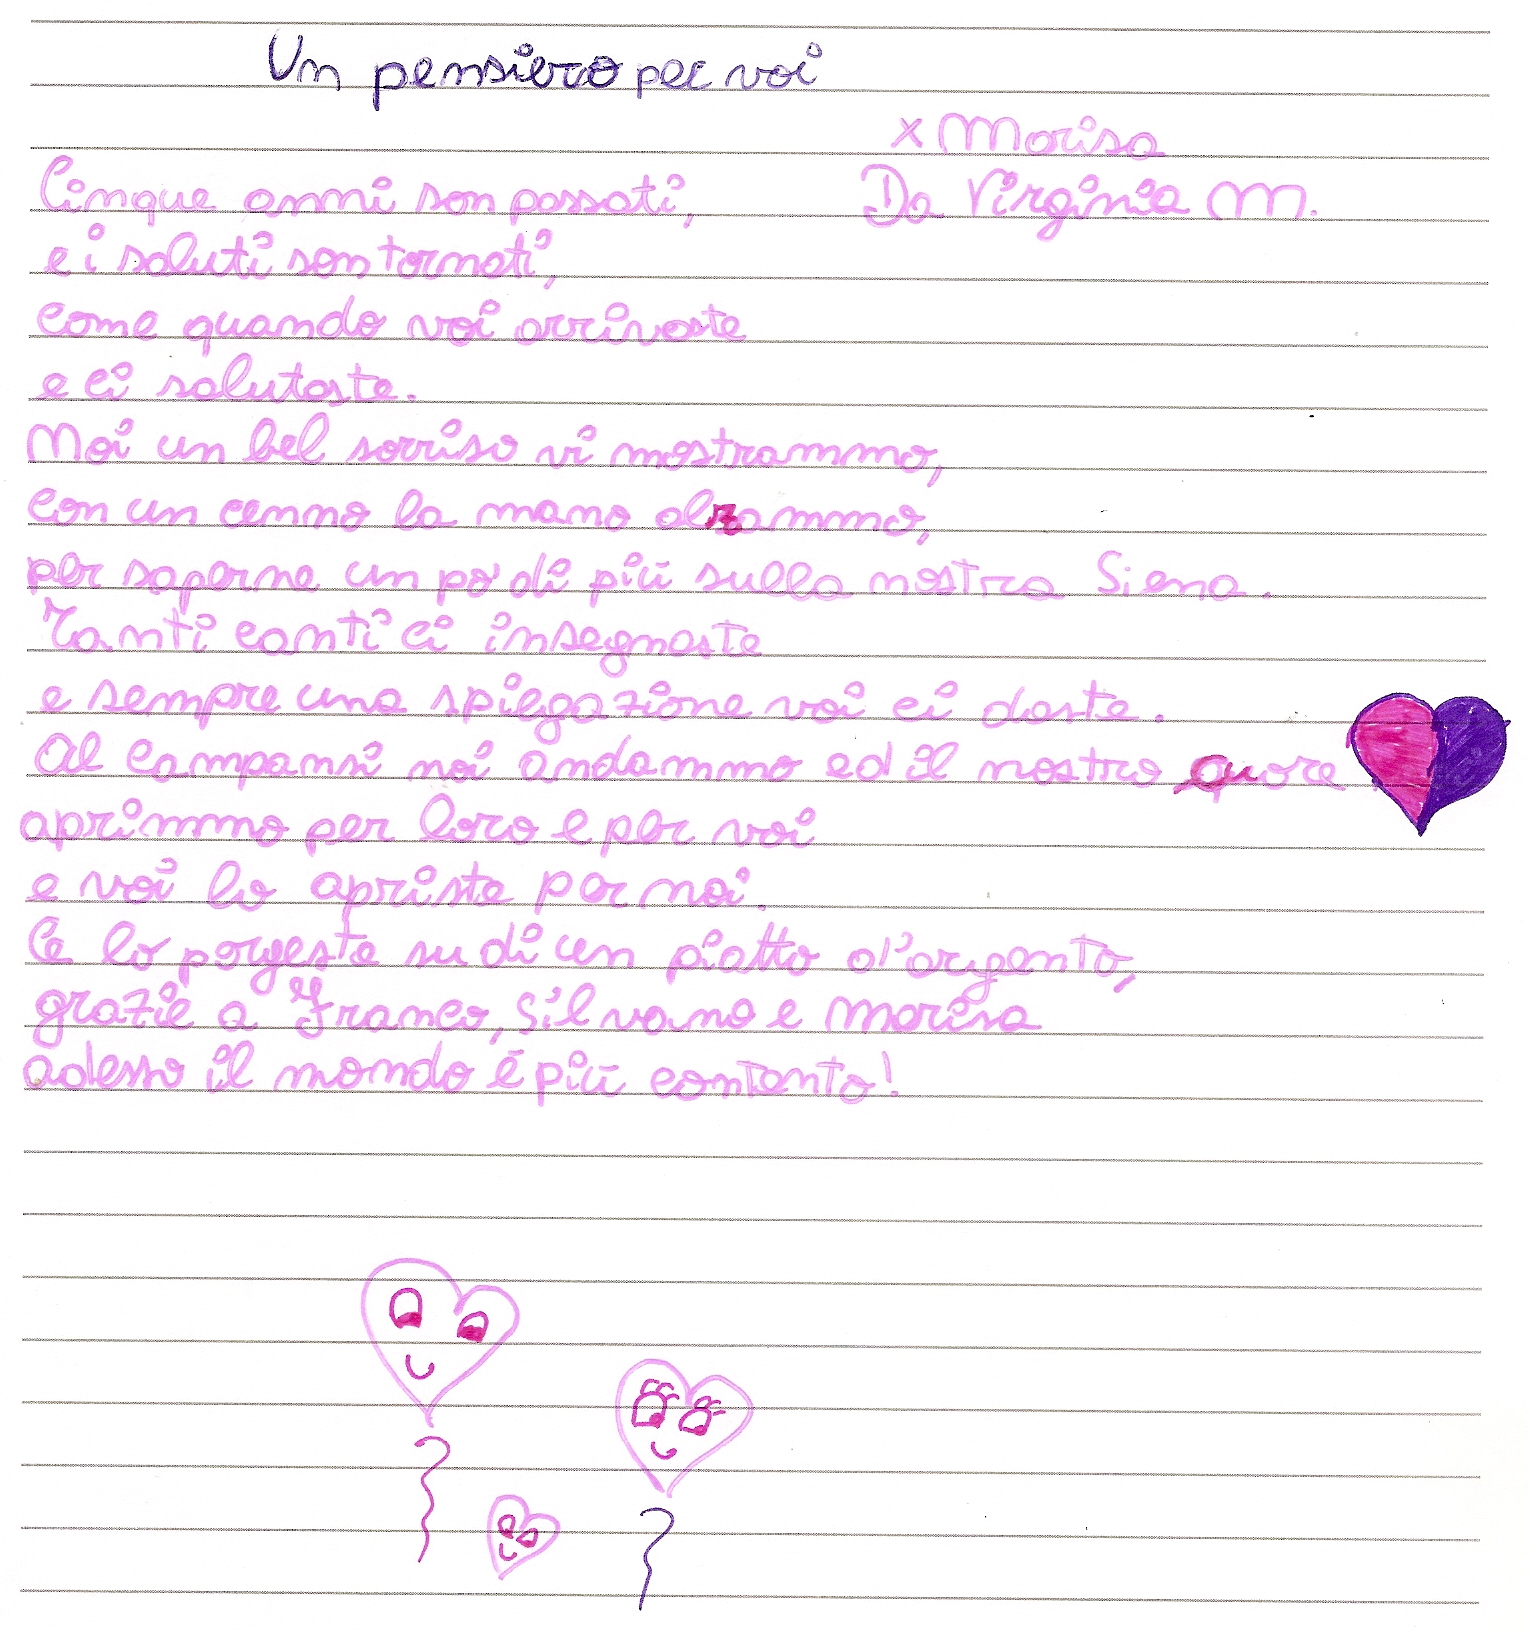 Un pensiero per voi
x Marisa
Da Virginia M.
Cinque anni son passati,
e i saluti son tornati,
come quando voi arrivaste
e ci salutaste.
Noi un bel sorriso vi mostrammo,
con un cenno la mano alzammo,
per saperne un po' di più sulla nostra Siena.
Tanti canti ci insegnaste
e sempre una spiegazione voi ci daste.
Al Campansi noi andammo ed il nostro quore
aprimmo per loro e per voi
e voi lo apriste per noi.
Ce lo porgeste su di un piatto d'argento,
grazie a Franco, Silvano e Marisa
adesso il mondo è più contento!